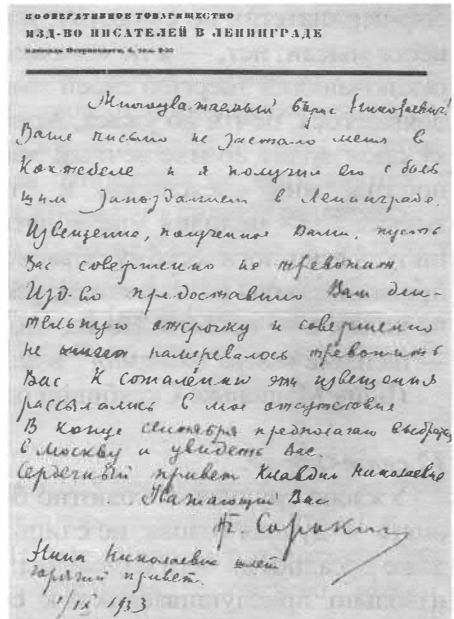 КООПЕРАТИВНОЕ ТОВАРИЩЕСТВО
ИЗД-ВО ПИСАТЕЛЕЙ В ЛЕНИНГРАДЕ
Многоуважаемый Борис Николаевич!
Ваше письмо не застало меня в
Коктебеле и я получил его с боль
шим запозданием в Ленинграде.
Извещение, полученное Вами, пусть
Вас совершенно не тревожит.
Изд-во предоставило Вам дли-
тельную отсрочку и совершенно
не намеревалось тревожить
Вас. К сожалению эти извещения
рассылались в мое отсутствие
В конце сентября предполагаю выбраться
в Москву и увидеть Вас.
Сердечный привет Клавдии Николаевне
Уважающий Вас
Сорокин
Николаевна шлет
горячий привет.
1/IX 1933